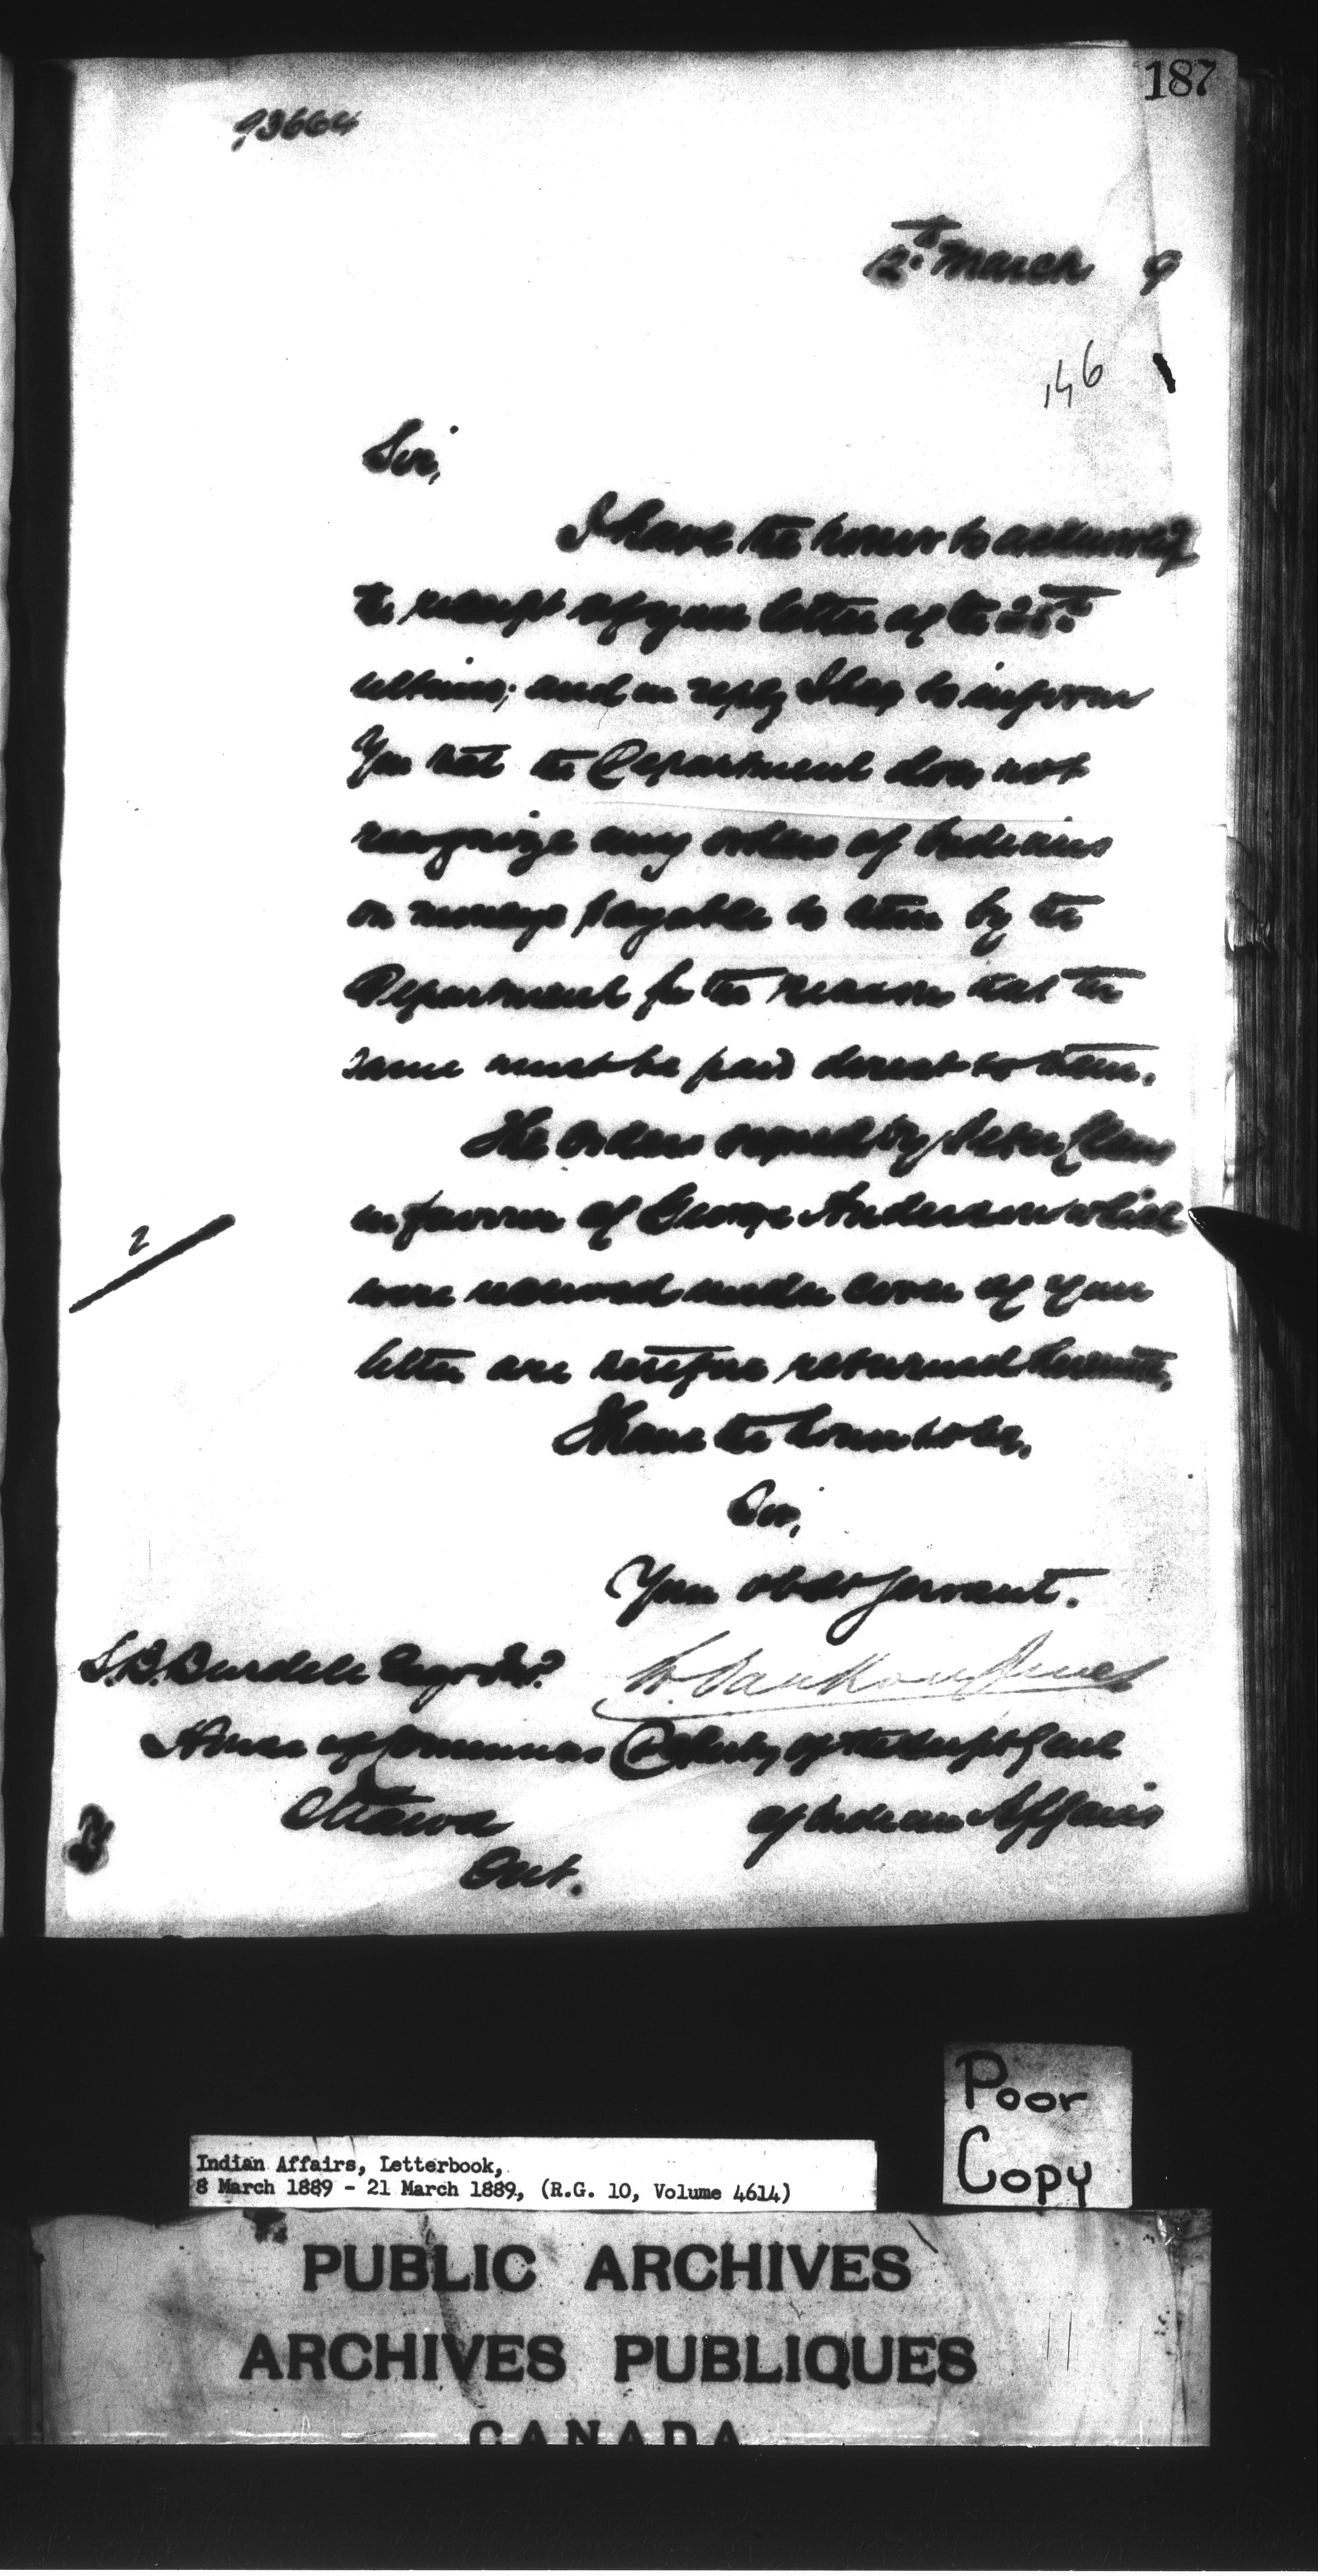 187
93664
12th March 9
146
Sir,
I have the honor to acknowledg
the receipt of your letter of the 25th
ultimo; and in reply I beg to inform
You that the Department does not
recognize any orders of Indians
on moneys payable to them by the
Department for the reason that the
same must be paid direct to them.
The orders signed by Peter
in favour of George Anderson which
2
were received under cover of your
letter are therefore returned herewith.
I have the honor to be,
Sir,
Your obdt servant.
S.B. Burdett Esqr M.P.
L. Vankoughnet
House of Commons
Deputy of the Supt Genl
Ottawa
of Indian Affairs
Ont.
Poor
Copy
Indian Affairs, Letterbook,
8 March 1889 - 21 March 1889, (R.G. 10, Volume 4614)
PUBLIC ARCHIVES
ARCHIVES PUBLIQUES
CANADA